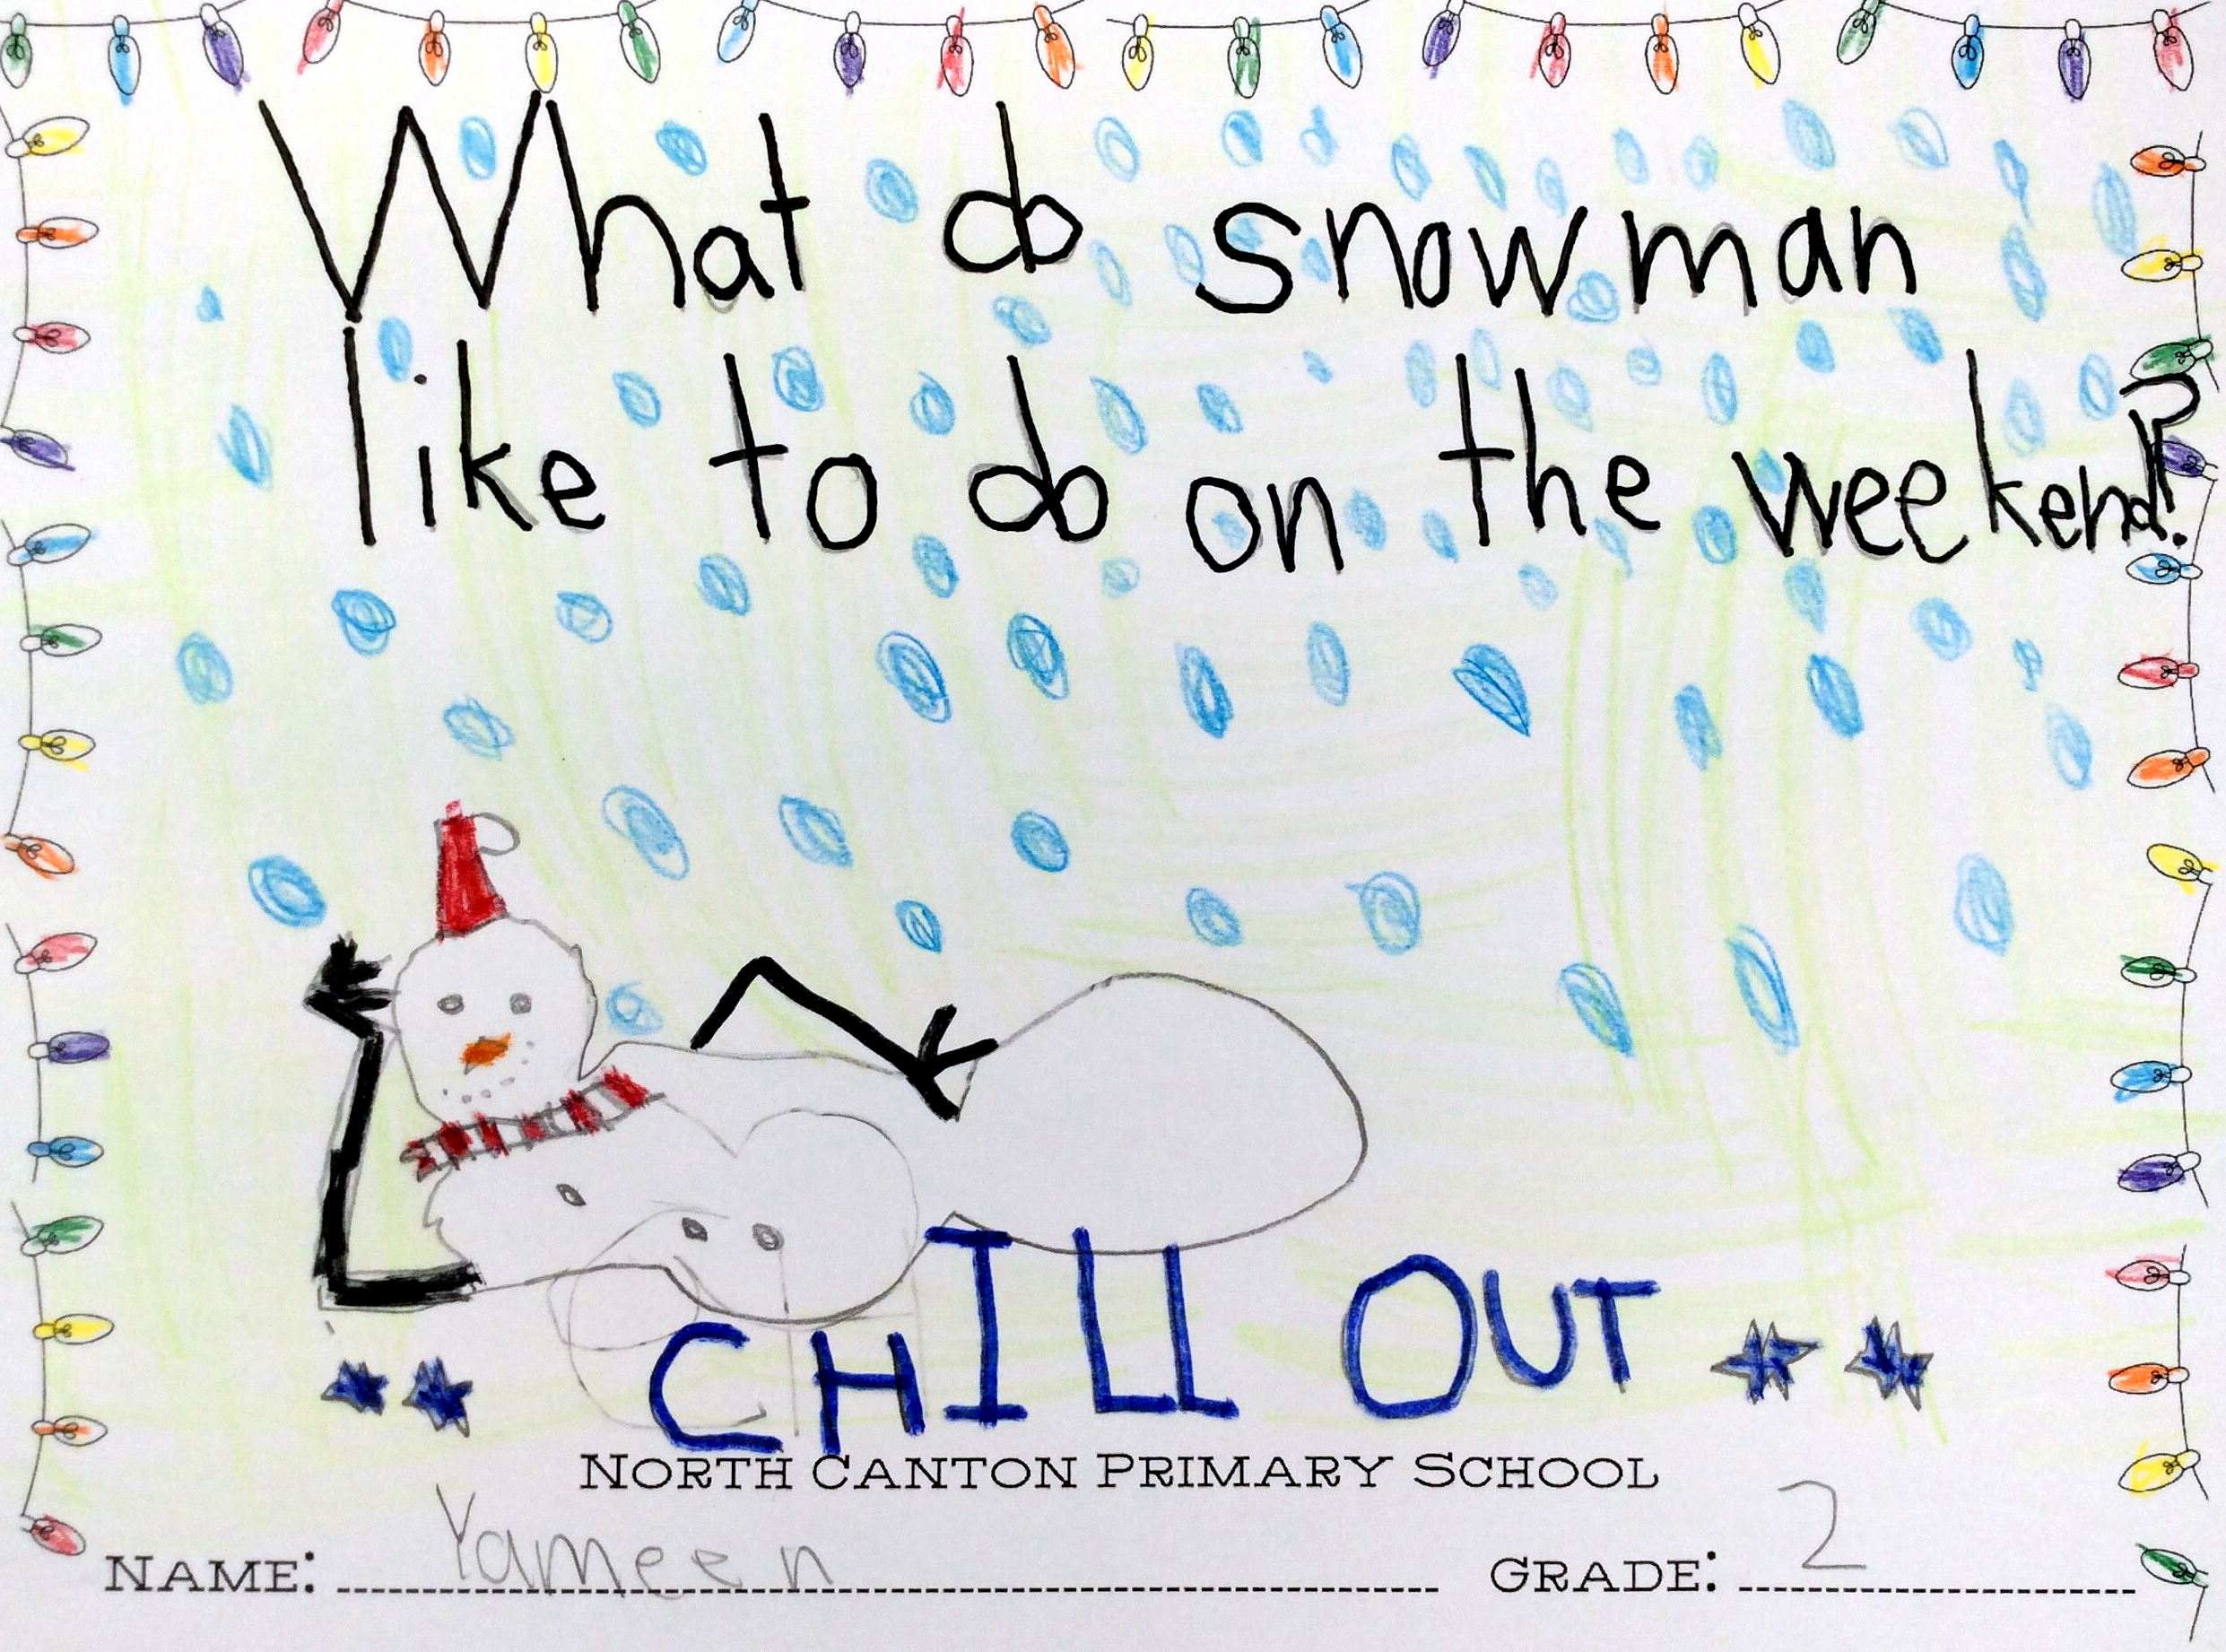 What do snowman
like to do on the weekend?
CHILL OUT
NORTH CANTON PRIMARY SCHOOL
NAME: Yameen GRADE: 2